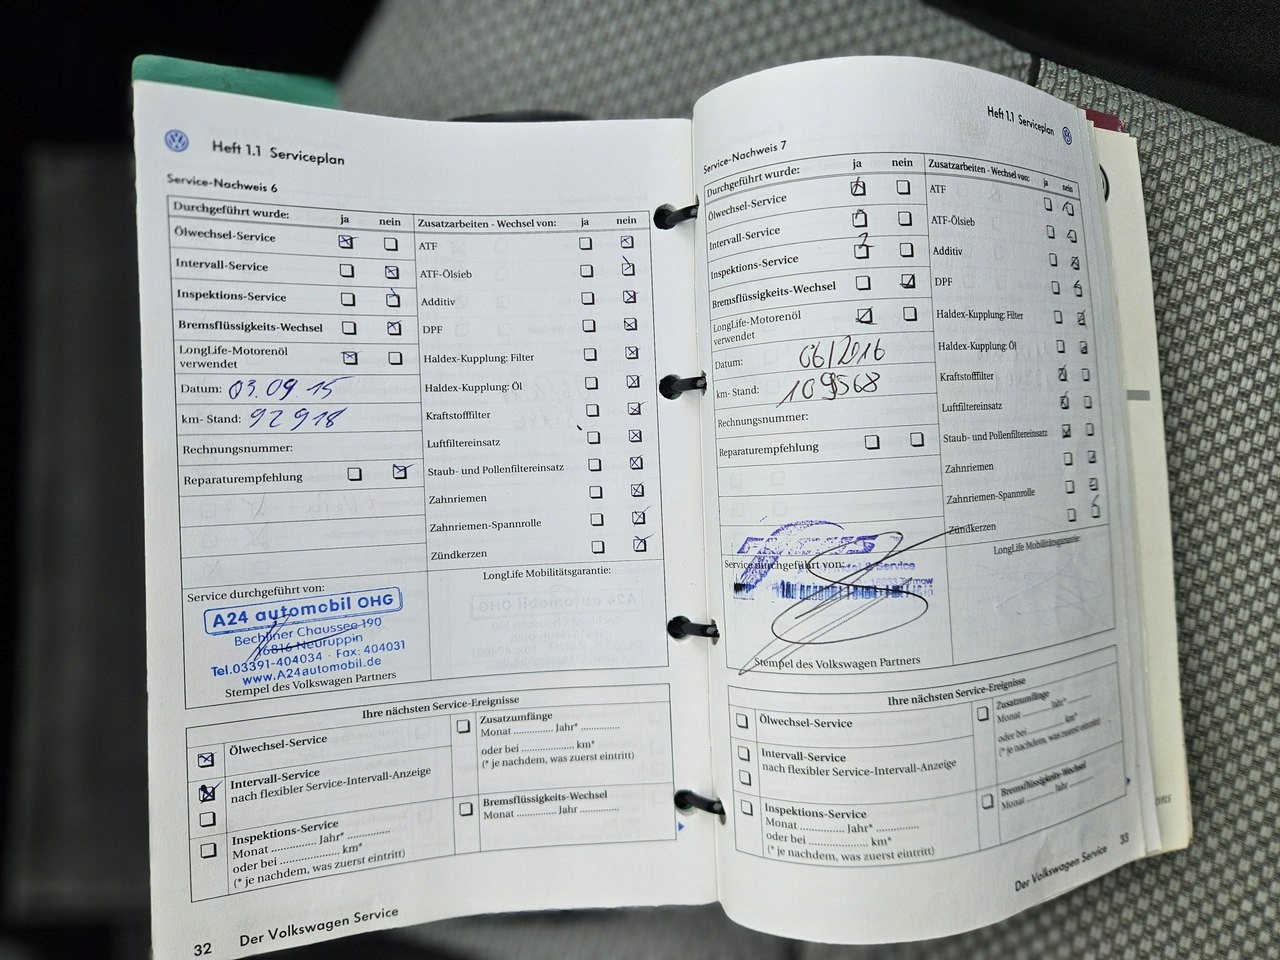 Heft 1.1 Serviceplan
Service-Nachweis 6
Durchgeführt wurde: ja nein
Ölwechsel-Service
Intervall-Service
Inspektions-Service
Bremsflüssigkeits-Wechsel
LongLife-Motorenöl
verwendet
Datum: 03.09.15
km- Stand: 92918
Rechnungsnummer:
Reparaturempfehlung
Zusatzarbeiten - Wechsel von: ja nein
ATF
ATF-Ölsieb
Additiv
DPF
Haldex-Kupplung: Filter
Haldex-Kupplung: Öl
Kraftstofffilter
Luftfiltereinsatz
Staub- und Pollenfiltereinsatz
Zahnriemen
Zahnriemen-Spannrolle
Zündkerzen
Service durchgeführt von:
A24 automobil OHG
Bechliner Chaussee 190
16816 Neuruppin
Tel.03391-404034 · Fax: 404031
www.A24automobil.de
Stempel des Volkswagen Partners
LongLife Mobilitätsgarantie:
Ihre nächsten Service-Ereignisse
Ölwechsel-Service
Intervall-Service
nach flexibler Service-Intervall-Anzeige
Inspektions-Service
Monat ............. Jahr* .............
oder bei .................. km*
(* je nachdem, was zuerst eintritt)
Zusatzumfänge
Monat ............. Jahr* ............
oder bei .................. km*
(* je nachdem, was zuerst eintritt)
Bremsflüssigkeits-Wechsel
Monat ............. Jahr .............
32 Der Volkswagen Service
Heft 1.1 Serviceplan
Service-Nachweis 7
Durchgeführt wurde: ja nein
Ölwechsel-Service
Intervall-Service
Inspektions-Service
Bremsflüssigkeits-Wechsel
LongLife-Motorenöl
verwendet
Datum: 06/2016
km- Stand: 109568
Rechnungsnummer:
Reparaturempfehlung
Zusatzarbeiten - Wechsel von: ja nein
ATF
ATF-Ölsieb
Additiv
DPF
Haldex-Kupplung: Filter
Haldex-Kupplung: Öl
Kraftstofffilter
Luftfiltereinsatz
Staub- und Pollenfiltereinsatz
Zahnriemen
Zahnriemen-Spannrolle
Zündkerzen
Service durchgeführt von:
& Service
Stempel des Volkswagen Partners
LongLife Mobilitätsgarantie:
Ihre nächsten Service-Ereignisse
Ölwechsel-Service
Intervall-Service
nach flexibler Service-Intervall-Anzeige
Inspektions-Service
Monat ............. Jahr* .............
oder bei .................. km*
(* je nachdem, was zuerst eintritt)
Zusatzumfänge
Monat ............. Jahr* ............
oder bei .................. km*
(* je nachdem, was zuerst eintritt)
Bremsflüssigkeits-Wechsel
Monat ............. Jahr .............
Der Volkswagen Service 33